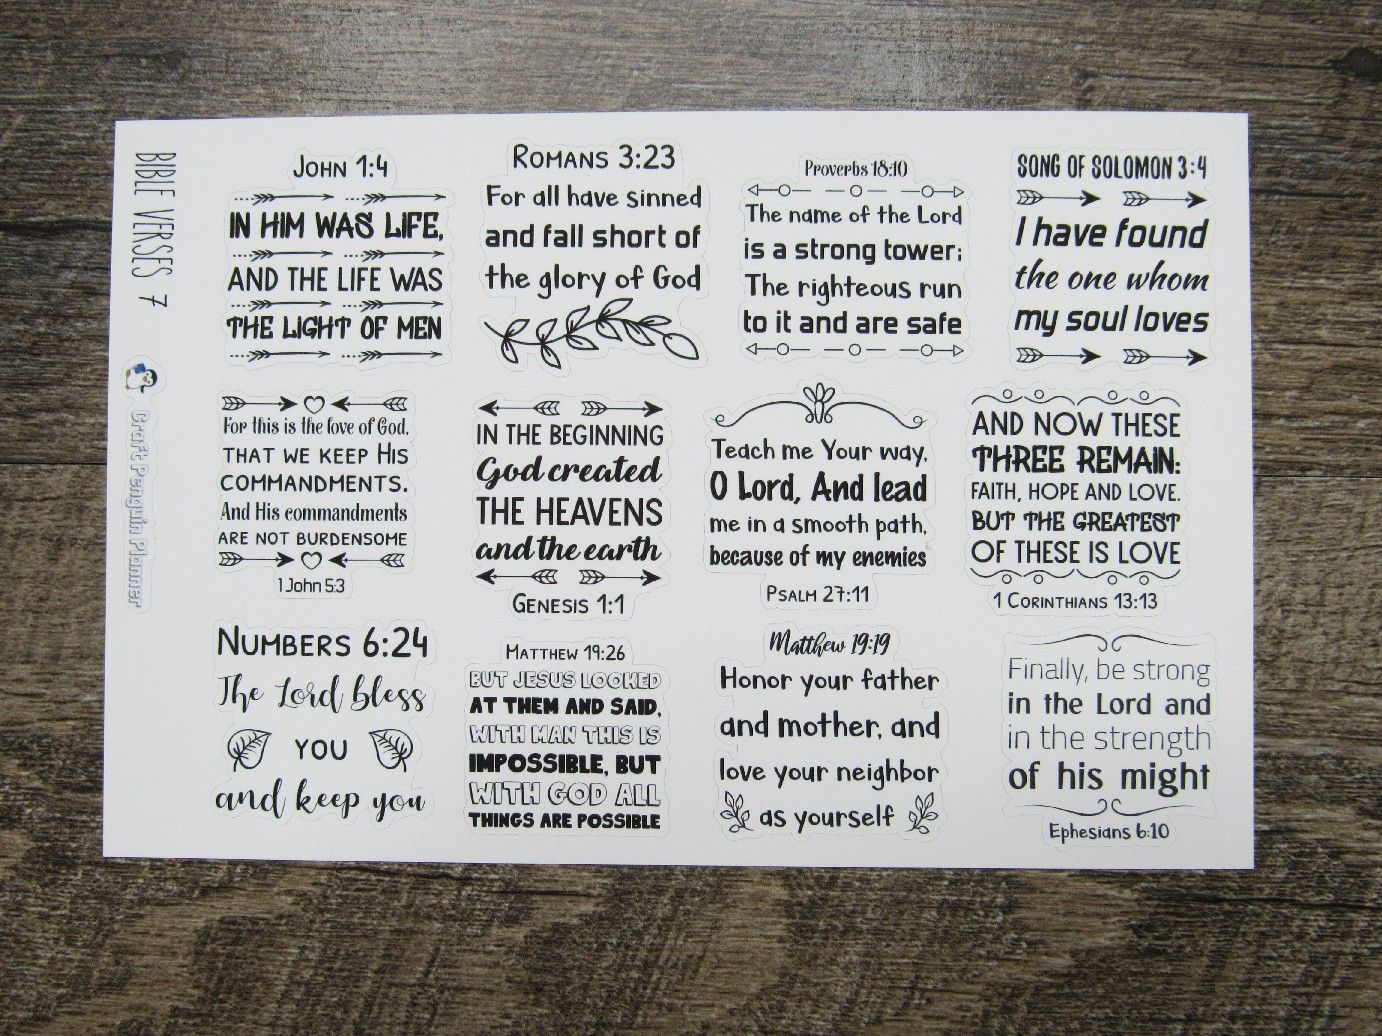 BIBLE VERSES 7
Craft Penguin Planner
John 1:4
IN HIM WAS LIFE,
AND THE LIFE WAS
THE LIGHT OF MEN
Romans 3:23
For all have sinned
and fall short of
the glory of God
Proverbs 18:10
The name of the Lord
is a strong tower;
The righteous run
to it and are safe
SONG OF SOLOMON 3:4
I have found
the one whom
my soul loves
For this is the love of God,
THAT WE KEEP HIS
COMMANDMENTS.
And His commandments
ARE NOT BURDENSOME
1 John 5:3
IN THE BEGINNING
God created
THE HEAVENS
and the earth
Genesis 1:1
Teach me Your way,
O Lord, And lead
me in a smooth path,
because of my enemies
Psalm 27:11
AND NOW THESE
THREE REMAIN:
FAITH, HOPE AND LOVE.
BUT THE GREATEST
OF THESE IS LOVE
1 Corinthians 13:13
Numbers 6:24
The Lord bless
YOU
and keep you
Matthew 19:26
BUT JESUS LOOKED
AT THEM AND SAID,
WITH MAN THIS IS
IMPOSSIBLE, BUT
WITH GOD ALL
THINGS ARE POSSIBLE
Matthew 19:19
Honor your father
and mother, and
love your neighbor
as yourself
Finally, be strong
in the Lord and
in the strength
of his might
Ephesians 6:10